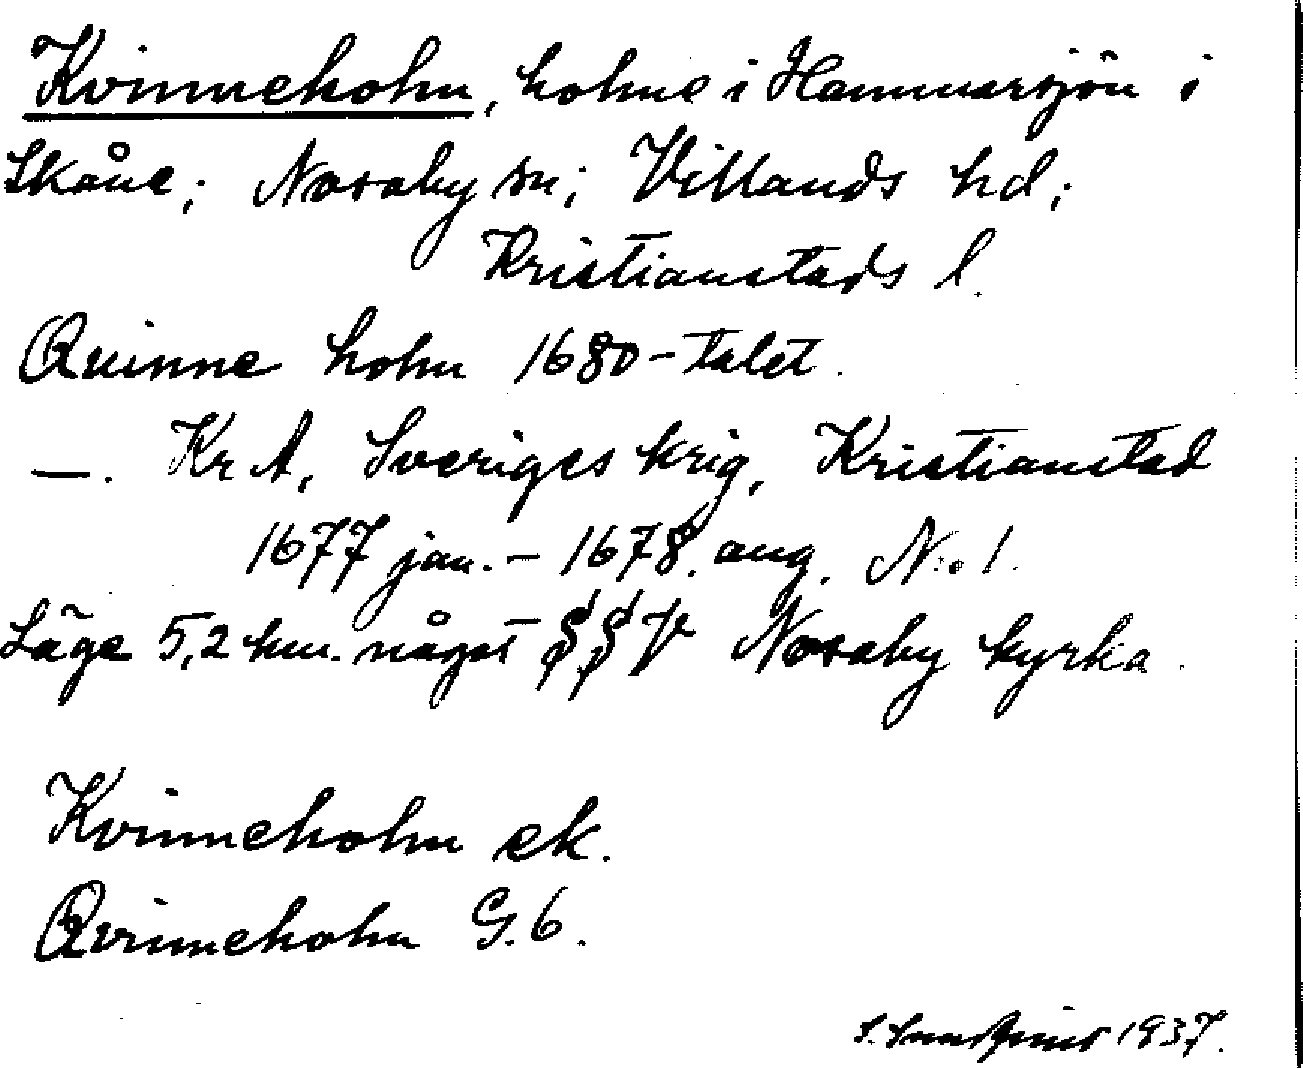 Kvinneholm, holme i Hammarsjön i
Skåne; Nosaby sn; Villands hd;
Kristianstads l.
Quinne holm 1680-talet.
—. KrA, Sveriges krig, Kristianstad
1677 jan. – 1678 aug. N:o 1.
Läge 5,2 km. något SSV Nosaby kyrka.
Kvinneholm ek.
Qvinneholm G.6.
1937.